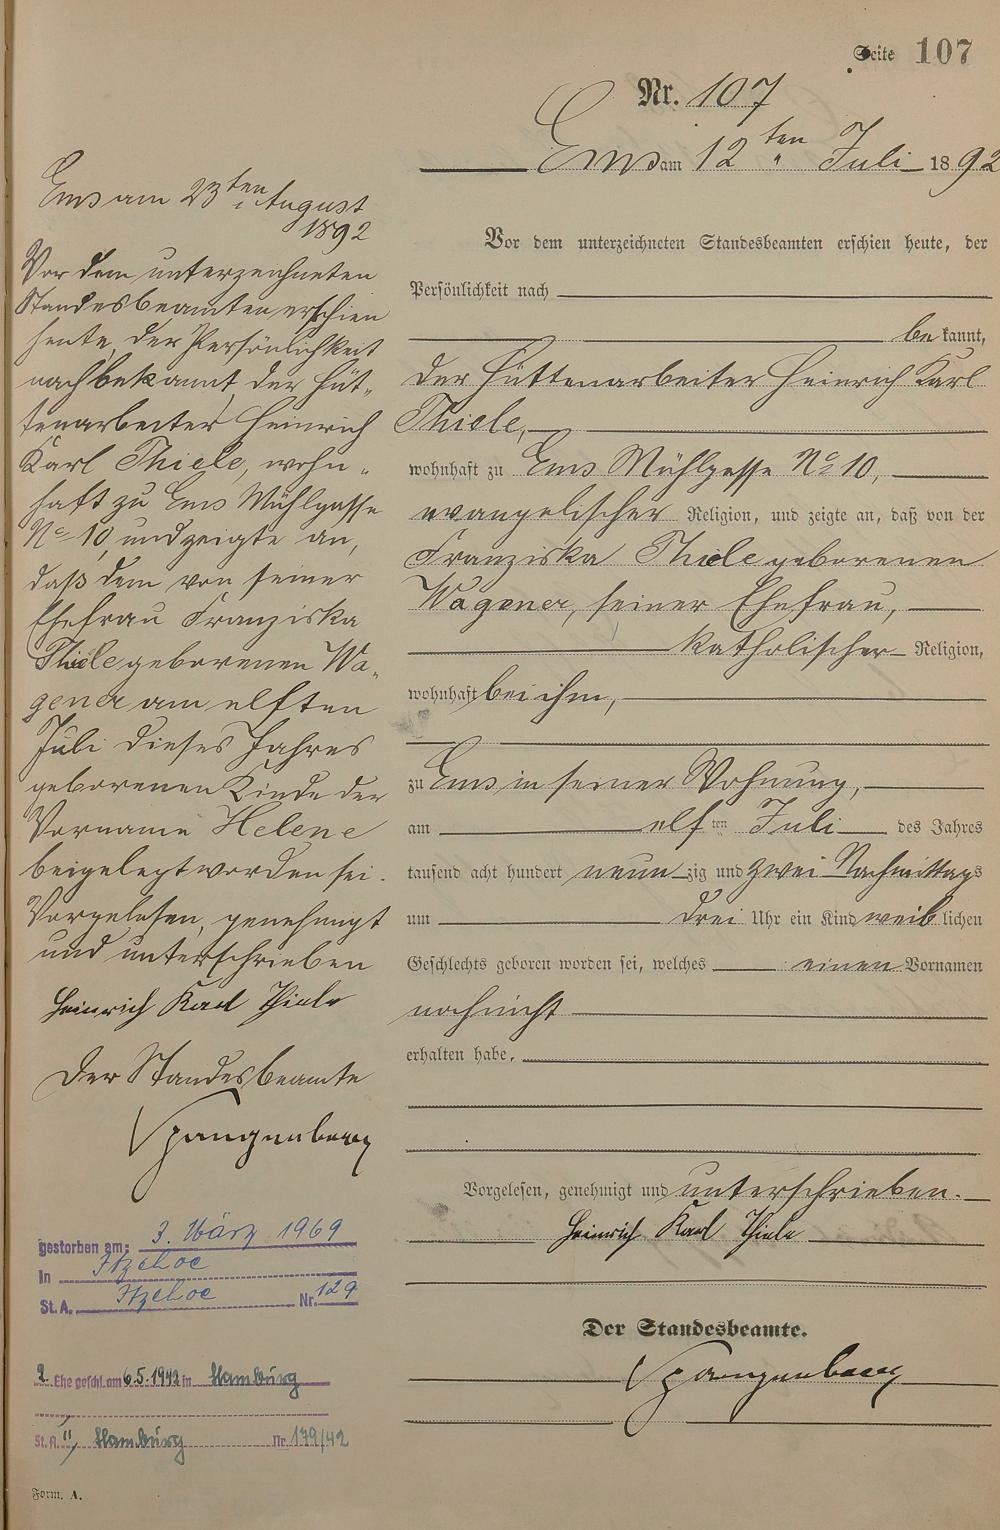 Seite 107
Nr. 107
Ems am 12ten Juli 1892
Vor dem unterzeichneten Standesbeamten erschien heute, der
Persönlichkeit nach
bekannt,
der Hüttenarbeiter Heinrich Karl
Thiele,
wohnhaft zu Ems Mühlgasse No 10,
evangelischer Religion, und zeigte an, daß von der
Franziska Thiele geborenen
Wagener, seiner Ehefrau,
katholischer Religion,
wohnhaft bei ihm,
zu Ems in seiner Wohnung,
am elften Juli des Jahres
tausend acht hundert neunzig und zwei Nachmittags
um drei Uhr ein Kind weiblichen
Geschlechts geboren worden sei, welches einen Vornamen
noch nicht
erhalten habe.
Vorgelesen, genehmigt und unterschrieben.
Heinrich Karl Thiele
Der Standesbeamte.
Spangenberg
Ems am 23ten August
1892
Vor dem unterzeichneten
Standesbeamten erschien
heute, der Persönlichkeit
nach bekannt, der Hüt-
tenarbeiter Heinrich
Karl Thiele, wohn-
haft zu Ems Mühlgasse
No 10, und zeigte an,
daß dem von seiner
Ehefrau Franziska
Thiele geborenen Wa-
gener am elften
Juli dieses Jahres
geborenen Kinde der
Vorname Helene
beigelegt worden sei.
Vorgelesen, genehmigt
und unterschrieben
Heinrich Karl Thiele
Der Standesbeamte
Spangenberg
gestorben am: 3. März 1969
In Itzehoe
St. A. Itzehoe Nr. 129
2. Ehe geschl. am 6.5.1942 in Hamburg
St. A. Hamburg Nr. 179/42
Form. A.